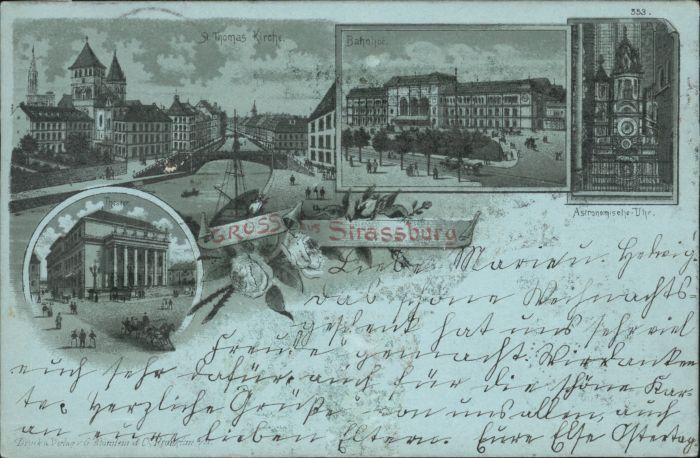 353.
St. Thomas Kirche.
Bahnhof.
Theater
Astronomische-Uhr.
GRUSS aus Strassburg
Liebe Marie u. Hedwig
das schöne Weihnachts-
geschenk hat uns sehr viel
Freude gemacht. Wir danken
euch sehr dafür, auch für die schöne Kar-
te. Herzliche Grüße von uns allen, auch
an eure lieben Eltern. Eure Else Ostertag.
Druck u. Verlag v. G.